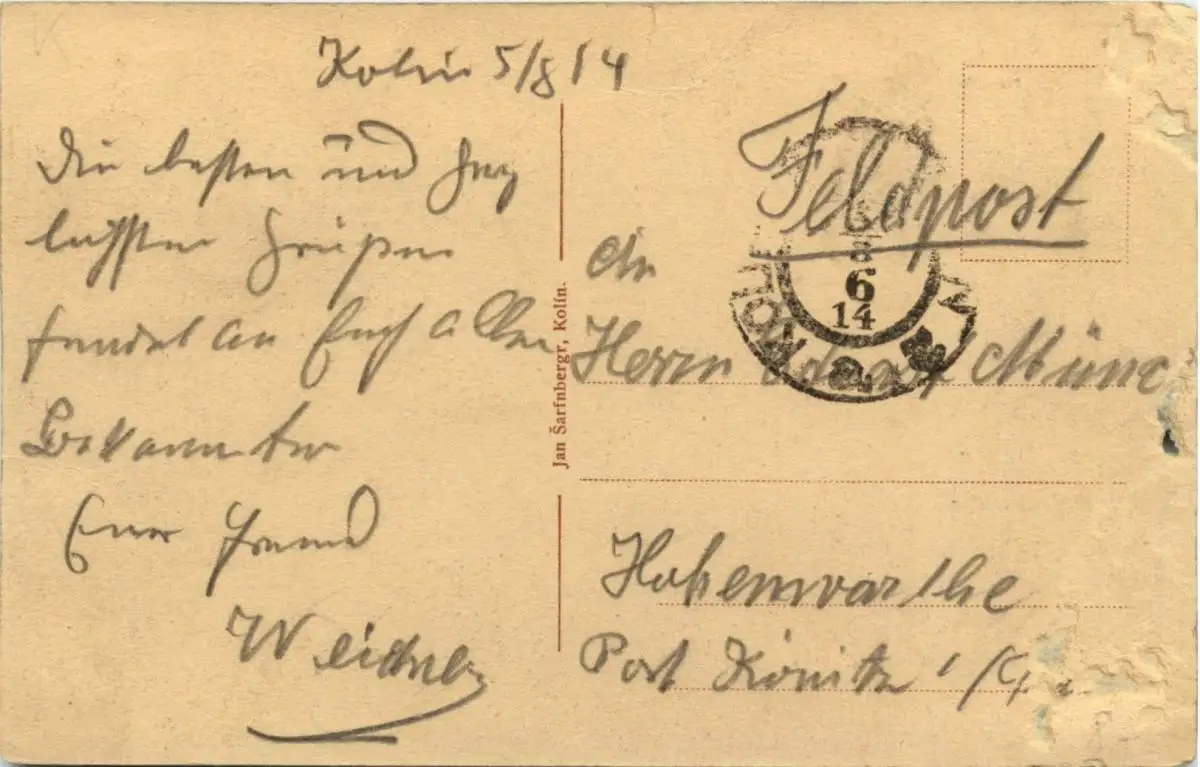 Kolin 5/8 14
Die besten und herz
lichsten Grüßen
sendet an Euch allen
Bekannten
Euer Freund
Jan Šarfnbergr, Kolín.
Feldpost
6
14
An
Herrn Münz
Hohenwarthe
Post Könitz